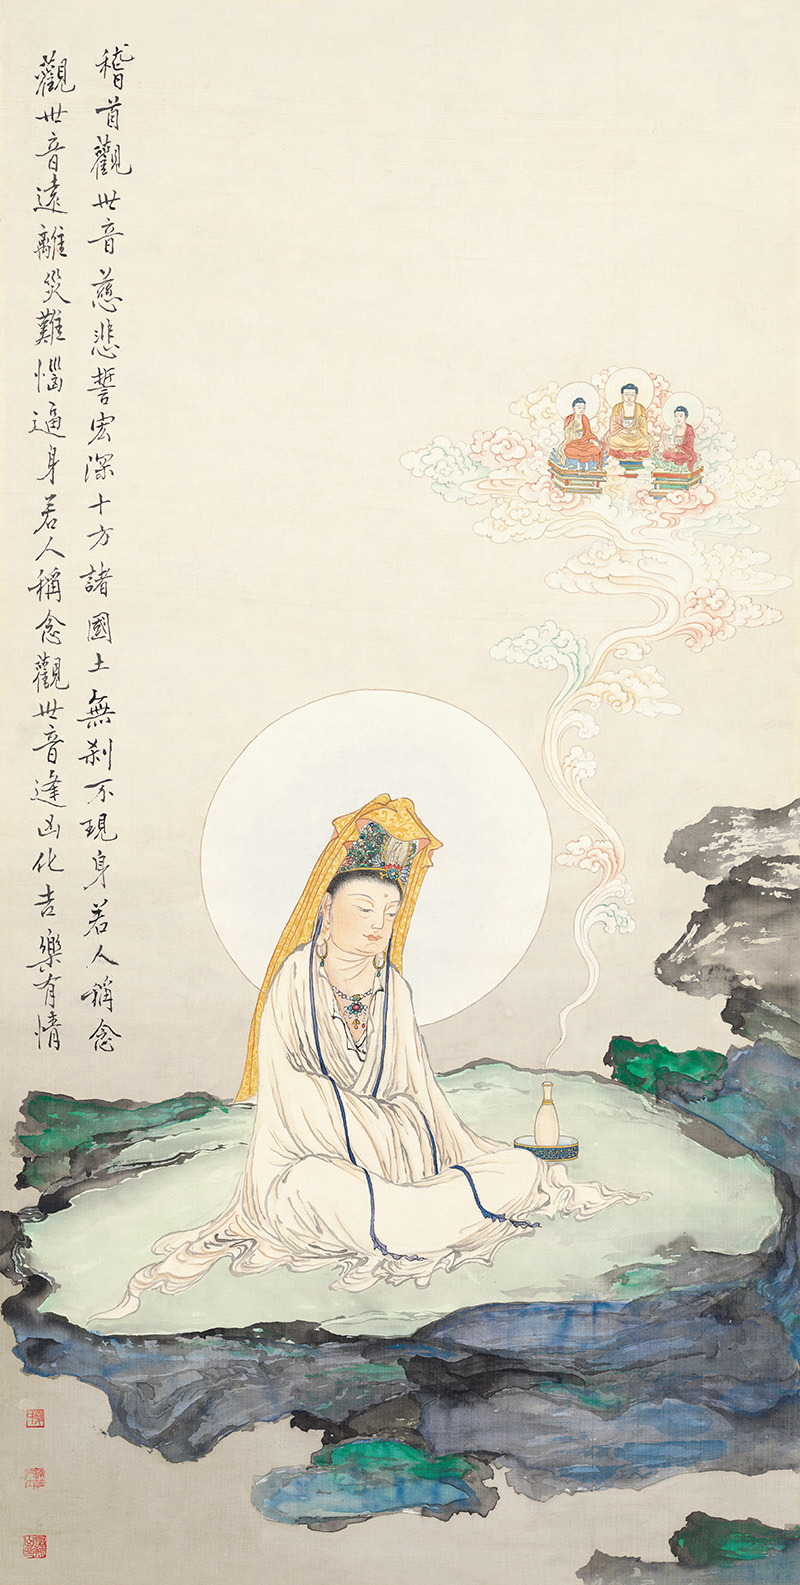 稽首觀世音慈悲誓宏深十方諸國土無剎不現身若人稱念
觀世音遠離災難惱逼身若人稱念觀世音逢凶化吉樂有情